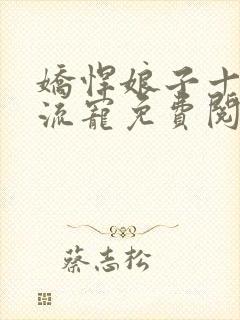 嬌悍娘子十
流寵免費閱
蔡志松